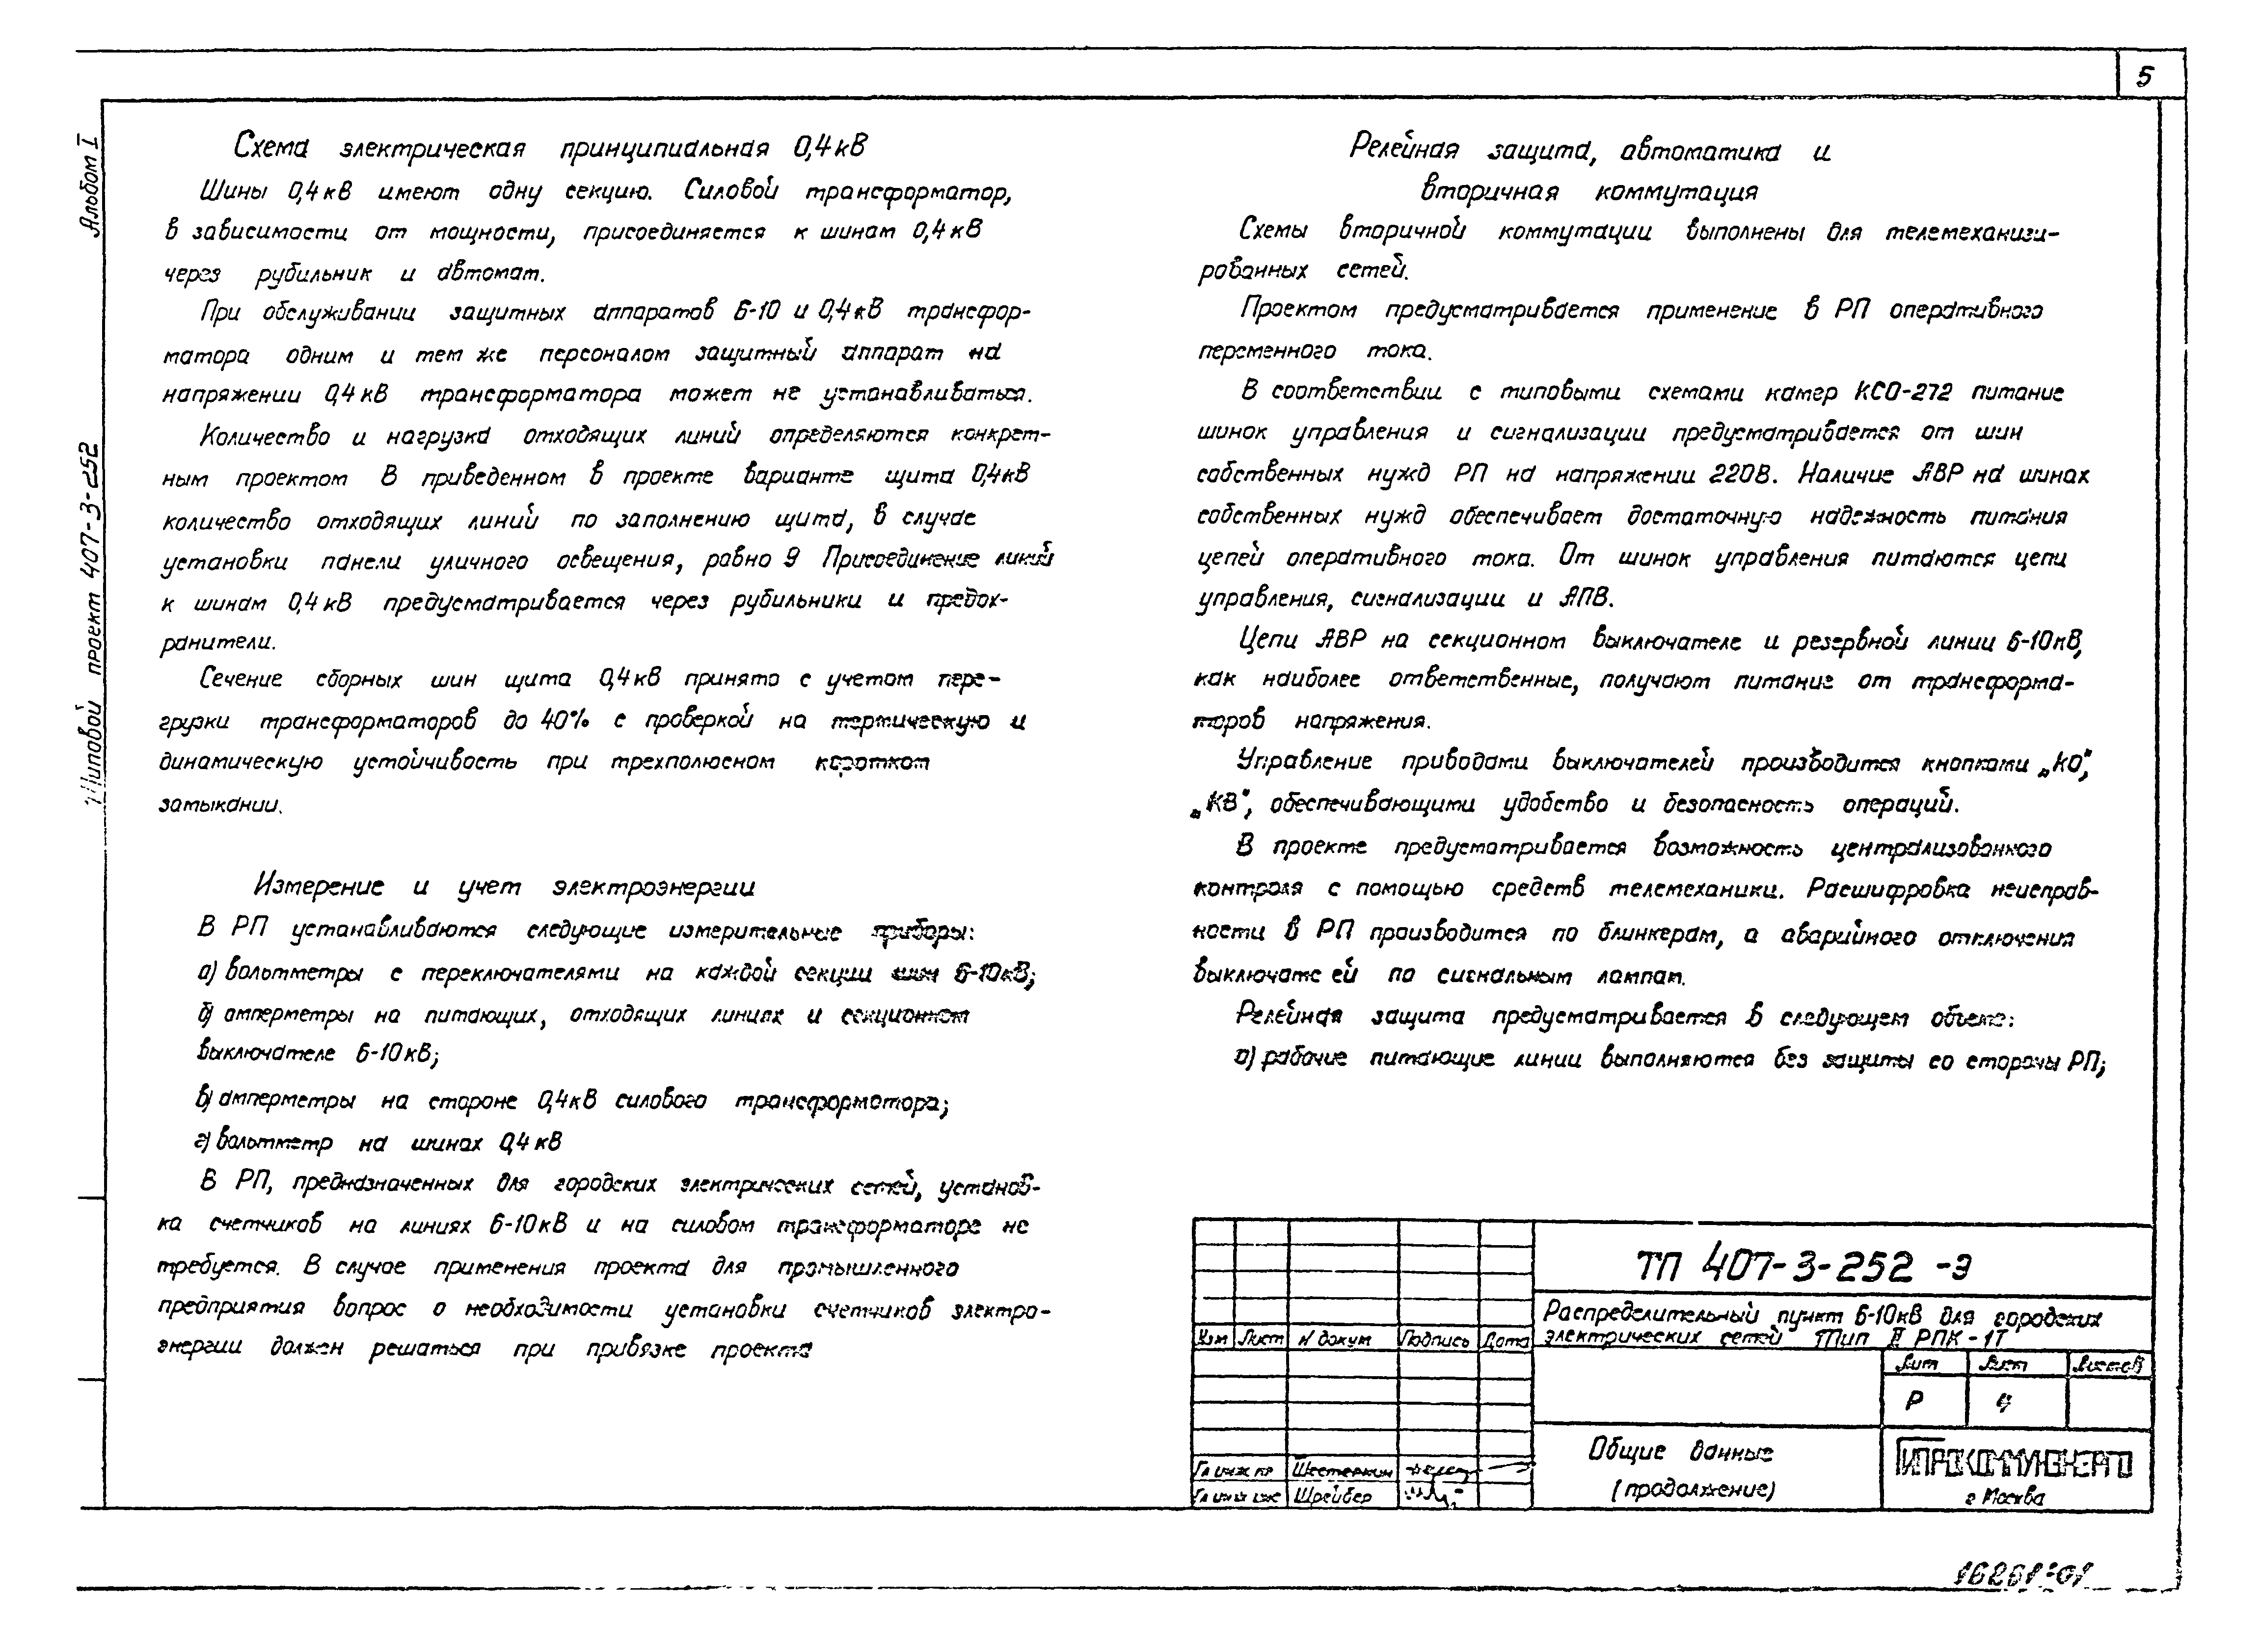 5
Альбом I
Типовой проект 407-3-252
Схема электрическая принципиальная 0,4кВ
Шины 0,4кВ имеют одну секцию. Силовой трансформатор,
в зависимости от мощности, присоединяется к шинам 0,4кВ
через рубильник и автомат.
При обслуживании защитных аппаратов 6-10 и 0,4кВ трансфор-
матора одним и тем же персоналом защитный аппарат на
напряжении 0,4кВ трансформатора может не устанавливаться.
Количество и нагрузка отходящих линий определяются конкрет-
ным проектом В приведенном в проекте варианте щита 0,4кВ
количество отходящих линий по заполнению щита, в случае
установки панели уличного освещения, равно 9 Присоединение линий
к шинам 0,4кВ предусматривается через рубильники и предох-
ранители.
Сечение сборных шин щита 0,4кВ принято с учетом пере-
грузки трансформаторов до 40% с проверкой на термическую и
динамическую устойчивость при трехполюсном коротком
замыкании.
Измерение и учет электроэнергии
В РП устанавливаются следующие измерительные приборы:
а) вольтметры с переключателями на каждой секции шин 6-10кВ;
б) амперметры на питающих, отходящих линиях и секционном
выключателе 6-10кВ;
в) амперметры на стороне 0,4кВ силового трансформатора;
г) вольтметр на шинах 0,4кВ
В РП, предназначенных для городских электрических сетей, установ-
ка счетчиков на линиях 6-10кВ и на силовом трансформаторе не
требуется. В случае применения проекта для промышленного
предприятия вопрос о необходимости установки счетчиков электро-
энергии должен решаться при привязке проекта
Релейная защита, автоматика и
вторичная коммутация
Схемы вторичной коммутации выполнены для телемеханизи-
рованных сетей.
Проектом предусматривается применение в РП оперативного
переменного тока.
В соответствии с типовыми схемами камер КСО-272 питание
шинок управления и сигнализации предусматривается от шин
собственных нужд РП на напряжении 220В. Наличие АВР на шинах
собственных нужд обеспечивает достаточную надежность питания
цепей оперативного тока. От шинок управления питаются цепи
управления, сигнализации и АПВ.
Цепи АВР на секционном выключателе и резервной линии 6-10кВ,
как наиболее ответственные, получают питание от трансформа-
торов напряжения.
Управление приводами выключателей производится кнопками „КО",
„КВ", обеспечивающими удобство и безопасность операций.
В проекте предусматривается возможность централизованного
контроля с помощью средств телемеханики. Расшифровка неисправ-
ности в РП производится по блинкерам, а аварийного отключения
выключате ей по сигнальным лампам.
Релейная защита предусматривается в следующем объеме:
а) рабочие питающие линии выполняются без защиты со стороны РП;
ТП 407-3-252 -Э
Распределительный пункт 6-10кВ для городских
электрических сетей Тип II РПК-1Т
Изм Лист N докум Подпись Дата
Лит Лист Листов
Р 4
Общие данные
(продолжение)
ГИПРОКОММУНЭНЕРГО
г Москва
Гл инж пр Шестеркин
Шрейбер
16261-01